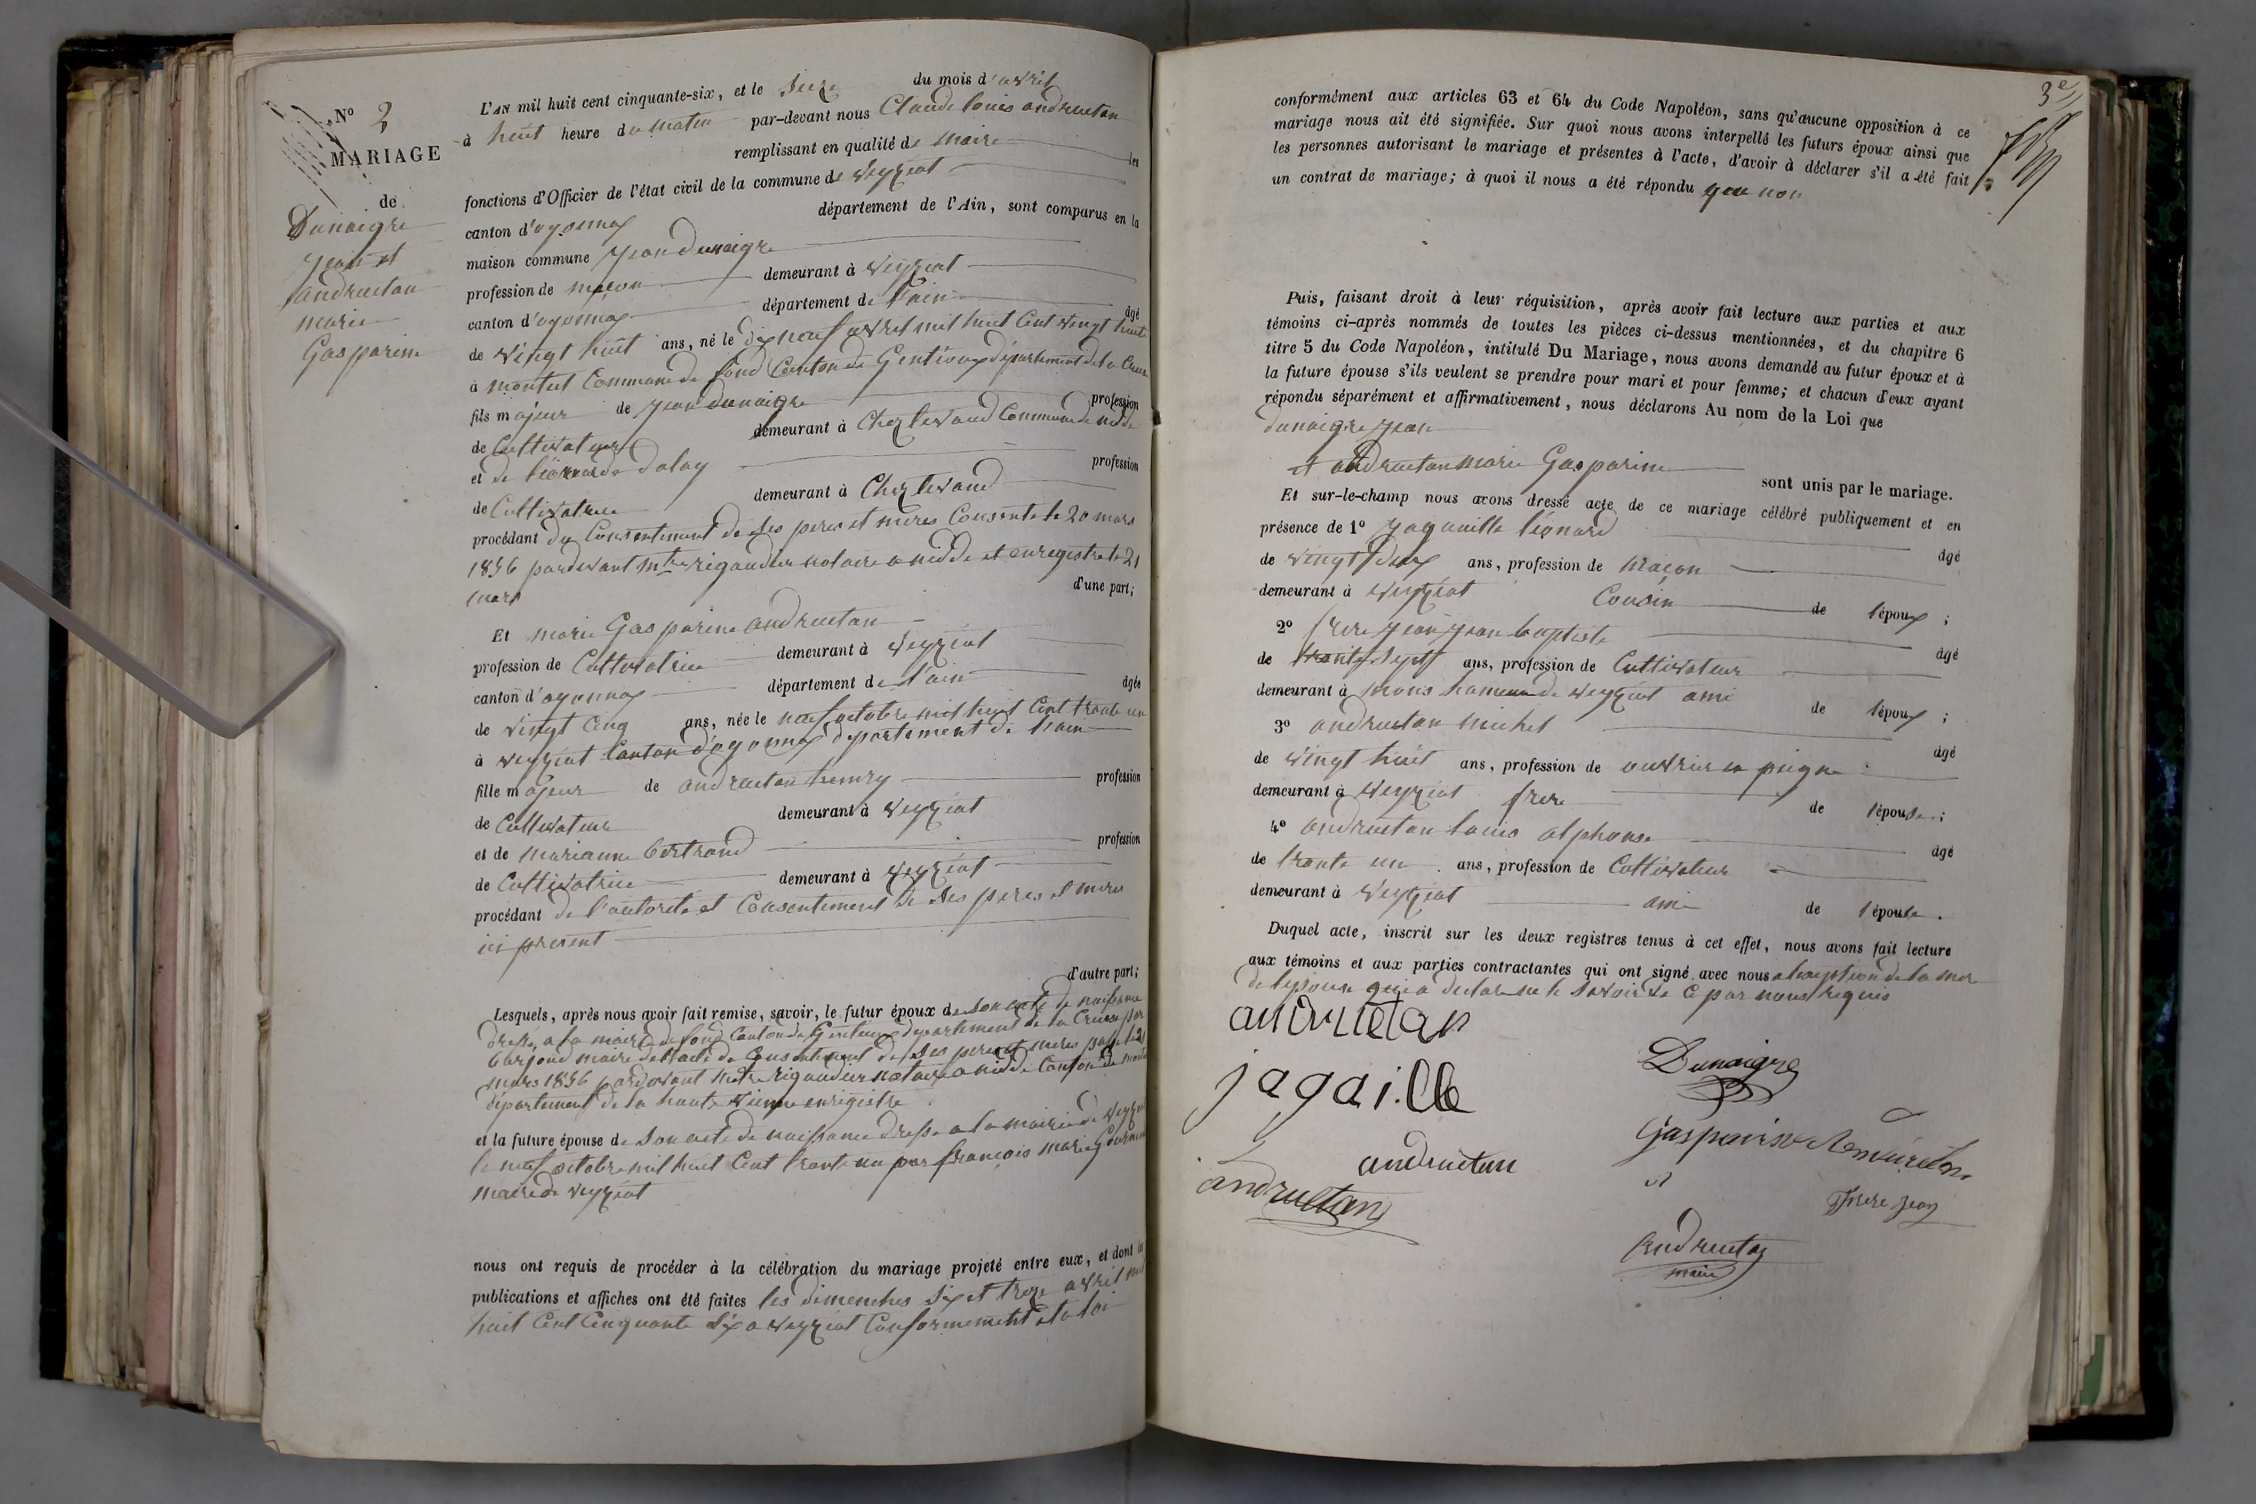 N° 2
MARIAGE
de
Dunaigre
jean et
andruetan
marie
Gasparine
L'AN mil huit cent cinquante-six, et le seize du mois d'avril
à huit heure du matin par-devant nous Claude louis andruetan
remplissant en qualité de maire les
fonctions d'Officier de l'état civil de la commune de veyziat
canton d'oyonnax département de l'Ain, sont comparus en la
maison commune jean dunaigre
profession de maçon demeurant à veyziat
canton d'oyonnax département de l'ain âgé
de vingt huit ans, né le dix neuf avril mil huit cent vingt huit
à Commune de Canton de Gentioux département de la Creuse
fils majeur de jean dunaigre profession
de Cultivateur demeurant à Chez Commune de nedde
et de léonarde profession
de Cultivatrice demeurant à Chez
procédant du Consentement de ses peres et meres Consente le 20 mars
1856 pardevant Mtre rigaudier notaire a nedde et enregistre le 21
mars d'une part;
Et marie Gasparine andruetan
profession de Cultivatrice demeurant à veyziat
canton d'oyonnax département de l'ain âgée
de vingt cinq ans, née le neuf octobre mil huit cent trente un
à veyziat Canton d'oyonnax département de l'ain
fille majeur de andruetan henry profession
de Cultivateur demeurant à veyziat
et de marianne bertrand profession
de Cultivatrice demeurant à veyziat
procédant de l'autorité et Consentement de ses peres et meres
ici present
d'autre part;
Lesquels, après nous avoir fait remise, savoir, le futur époux de son acte de naissance
dressé a la mairie de Canton de Gentioux département de la Creuse par
maire de l'acte de Consentement de ses peres et meres passe le 21
mars 1856 pardevant Mtre rigaudier notaire a nedde Canton de
département de la haute vienne enregistre
et la future épouse de son acte de naissance dresse a la mairie de veyziat
le neuf octobre mil huit cent trente un par françois marie
maire de veyziat
nous ont requis de procéder à la célébration du mariage projeté entre eux, et dont les
publications et affiches ont été faites les dimenches six et treze avril mil
huit Cent Cinquante six a veyziat Conformement a la loi
3e
conformément aux articles 63 et 64 du Code Napoléon, sans qu'aucune opposition à ce
mariage nous ait été signifiée. Sur quoi nous avons interpellé les futurs époux ainsi que
les personnes autorisant le mariage et présentes à l'acte, d'avoir à déclarer s'il a été fait
un contrat de mariage; à quoi il nous a été répondu que non
Puis, faisant droit à leur réquisition, après avoir fait lecture aux parties et aux
témoins ci-après nommés de toutes les pièces ci-dessus mentionnées, et du chapitre 6
titre 5 du Code Napoléon, intitulé Du Mariage, nous avons demandé au futur époux et à
la future épouse s'ils veulent se prendre pour mari et pour femme; et chacun d'eux ayant
répondu séparément et affirmativement, nous déclarons Au nom de la Loi que
dunaigre jean
et andruetan marie Gasparine sont unis par le mariage.
Et sur-le-champ nous avons dressé acte de ce mariage célébré publiquement et en
présence de 1° léonard âgé
de vingt deux ans, profession de maçon
demeurant à veyziat Cousin de l'époux ;
2° frere jean jean baptiste âgé
de trente sept ans, profession de Cultivateur
demeurant à mons hameau de veyziat ami de l'époux ;
3° andruetan michel âgé
de vingt huit ans, profession de ouvrier en peigne
demeurant à veyziat frere de l'épouse ;
4° andruetan louis alphonse âgé
de trente un ans, profession de Cultivateur
demeurant à veyziat ami de l'épouse .
Duquel acte, inscrit sur les deux registres tenus à cet effet, nous avons fait lecture
aux témoins et aux parties contractantes qui ont signé avec nous a lexception de la mere
de lepouse qui a declare ne le savoir de ce par nous requis
andruetan
Dunaigre
jagaille
Gasparine Andruetan
andruetan
andruetan
frere jean
Andruetan
maire